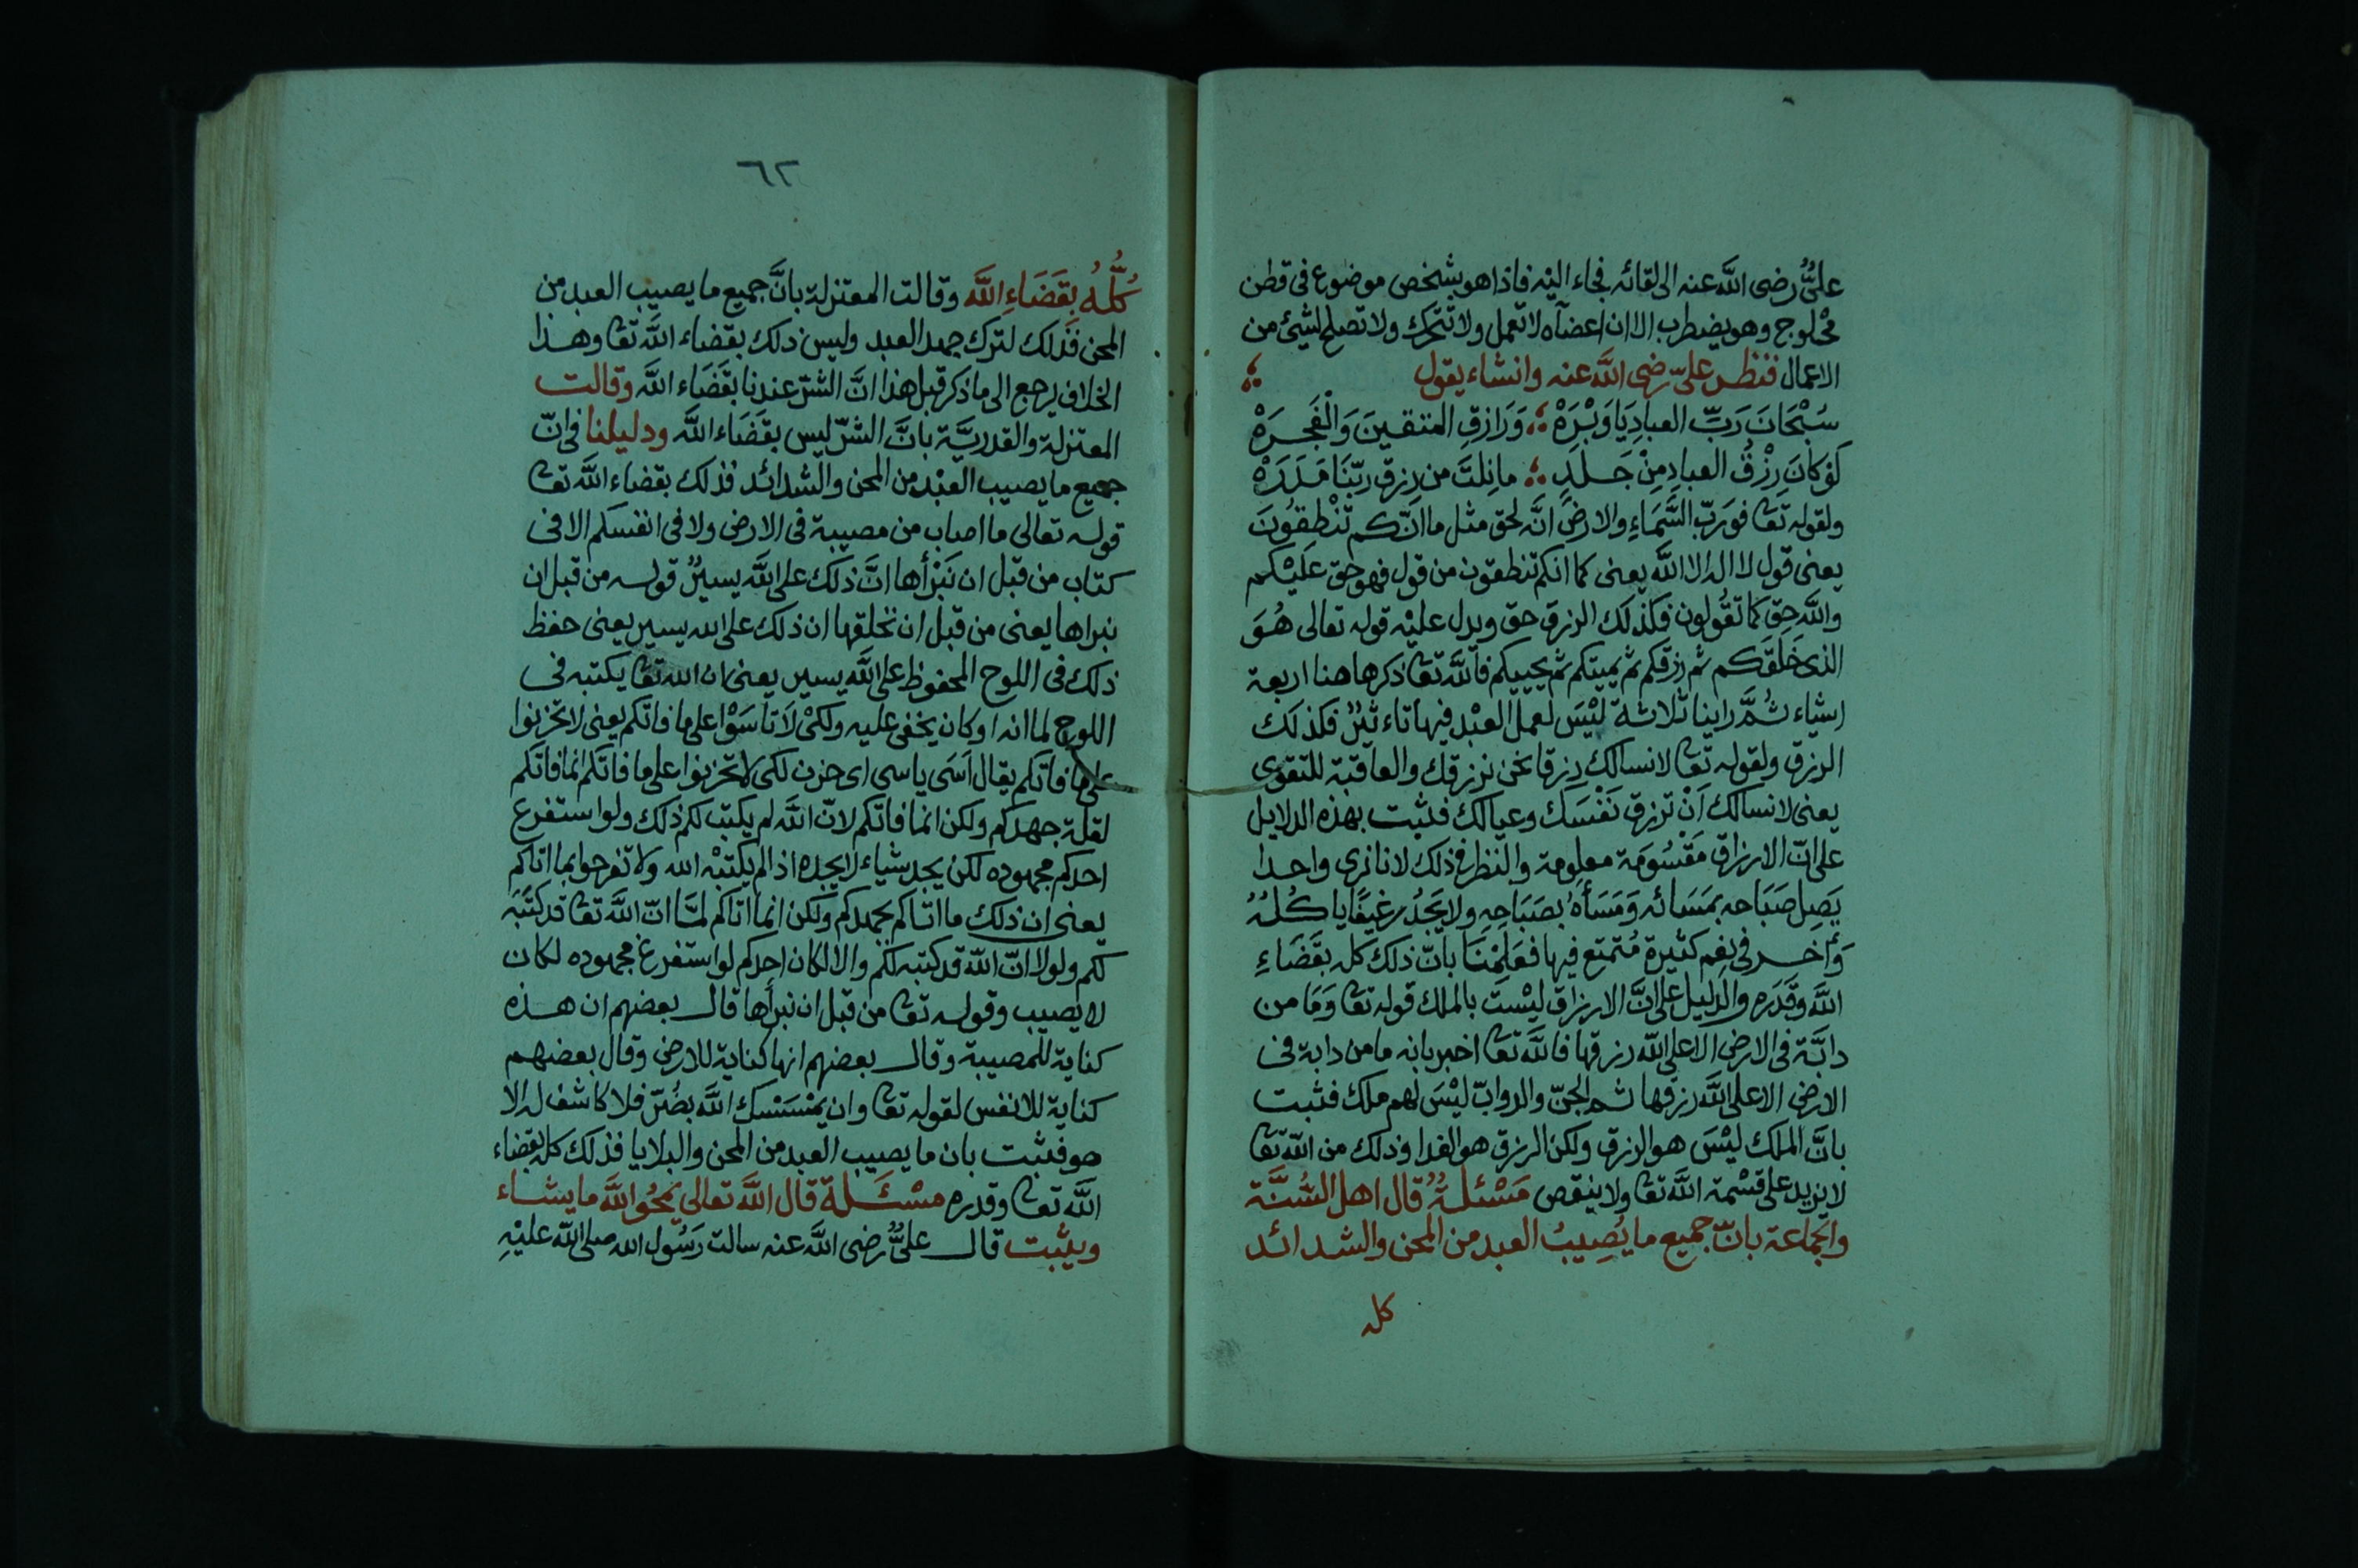 علىٌّ رضى اللّٰه عنه الى لقائه فجاء اليْه فاذا هو بشخص موضوع فى قطن
محْلوج وهو يضطرب الا ان اعضآه لا تعمل ولا تتحرك ولا تصلح لشئ من
الاعمال فنظر علىّ رضى اللّٰه عنه وانشاء يقول
سُبْحَانَ رَبِّ العبادِ يَا وَبْرَهْ وَرَازقِ المتقينَ وَالْفَجَرَهْ
لَوْ كانَ رِزْقُ العبادِ مِنْ جَلَدٍ ما نِلتَ من رزق ربّنَا مَدَرَهْ
ولقوله تعا فوَرَبّ السَّمَاءِ والارضِ انَّه لحق مثل ما انّكم تنْطِقوُنَ
يعنى قول لا اله الا اللّٰه يعنى كما انكم تنطقون من قول فهو حق عليْكم
واللّٰه حق كما تقُولون فكذلك الرزق حق ويدل عليْه قوله تعالى هُوَ
الذى خَلَقكم ثم رزقكم ثم يميتكم ثم يحييكم فاللّٰه تعا ذكر هاهنا اربعة
اشياء ثمَّ راينا ثلاثة ليْسَ لعمل العبْد فيها تاءثيرٌ فكذلك
الرزق ولقوله تعا لا نسالك رزقا نحن نرزقك والعاقبة للتقوى
يعنى لا نسالك اَنْ ترزق نَفْسَكَ وعيالك فثبت بهذه الدلايل
على انّ الارزاق مَقْسُومَة معلومة والنظر فى ذلك لانا نرى واحدا
يَصِل صَبَاحه بمَسَائه وَمَسَأهُ بصَبَاحِهِ ولا يَجَدُ رغيفًا ياكلُهُ
وَأخر فى نِعَم كثيرة مُتمتع فيها فعَلِمْنَا بانّ ذلك كله بقَضَاءِ
اللّٰه وقَدَره والدليل على انَّ الارزاق ليْسَت بالملك قوله تعا وَمَا من
دابَّة فى الارض الا على اللّٰه رزقها فاللّٰه تعا اخبر بانه ما من دابة فى
الارض الا على اللّٰه رزقها ثم الجنّ والدوابّ ليْسَ لهم ملك فثبت
بانَّ الملك ليْسَ هو الرزق ولكن الرزق هو الغدا وذلك من اللّٰه تعا
لا يزيد على قسْمة اللّٰه تعا ولا ينقص مَسْئلةٌ قال اهل السُّنَّة
والجماعة بانّ جميع ما يُصِيبُ العبد من المحن والشدائد
كله
٦٢
كُلُّهُ بِقَضَاءِ اللّٰه وقالت المعتزلة بانَّ جميع ما يصيب العبد من
المحن فذلك لترك جهد العبد وليس ذلك بقضاء اللّٰه تعا وهذا
الخلاف يرجع الى ما ذكر قبل هذا انَّ الشرّ عندنا بقَضَاء اللّٰه وقالت
المعتزلة والقدريَّة بانَّ الشرّ ليس بقَضَاء اللّٰه ودليلنا فى انّ
جميع ما يصيب العبْد من المحن والشدائد فذلك بقضاء اللّٰه تعا
قوله تعالى ما اصاب من مصيبة فى الارض ولا فى انفسكم الا فى
كتاب من قبل ان نَبْرأها انَّ ذلك على اللّٰه يسيرٌ قوله من قبل ان
نبراها يعنى من قبل ان نخلقها ان ذلك على الله يسير يعنى حفظ
ذلك فى اللوح المحفوظ على اللّٰه يسير يعنى ان الله تعا يكتبه فى
اللوح لما انه او كان يخفى عليه ولكىْ لَا تاسَوْا على ما فاتكم يعنى لا تحزنوا
على ما فاتكم يقال اَسَى ياسى اى حزن لكى لا تحزنوا على ما فاتكم انما فاتكم
لقلة جهدكم ولكن انما فاتكم لانّ اللّٰه لم يكتب لكم ذلك ولو استفرغ
احدكم مجهوده لكن يجد شياء لا يجده اذ الم يكتبْه الله ولا تفرحوا بما اتاكم
يعنى ان ذلك ما اتاكم بجهدكم ولكن انما اتاكم لمَّا انّ اللّٰه تعا قد كتَبَه
لكم ولولا انّ اللّٰه قد كتبه لكم والا لكان احدكم لو استفرغ مجهوده لكان
لا يصيب وقوله تعا من قبل ان نبرأها قال بعضهم ان هذه
كناية للمصيبة وقال بعضهم انها كناية للارض وقال بعضهم
كناية للانفس لقوله تعا وان يمْسَسْك اللّٰه بضُرّ فلا كاشف له الا
هو فثبت بان ما يصيب العبد من المحن والبلايا فذلك كله بقضاء
اللّٰه تعا وقدره مسْئَلة قال اللّٰه تعالى يمْحُو اللّٰه ما يشاء
ويثبت قال علىٌّ رضى اللّٰه عنه سالت رَسُول الله صلى اللّٰه عليْهِ